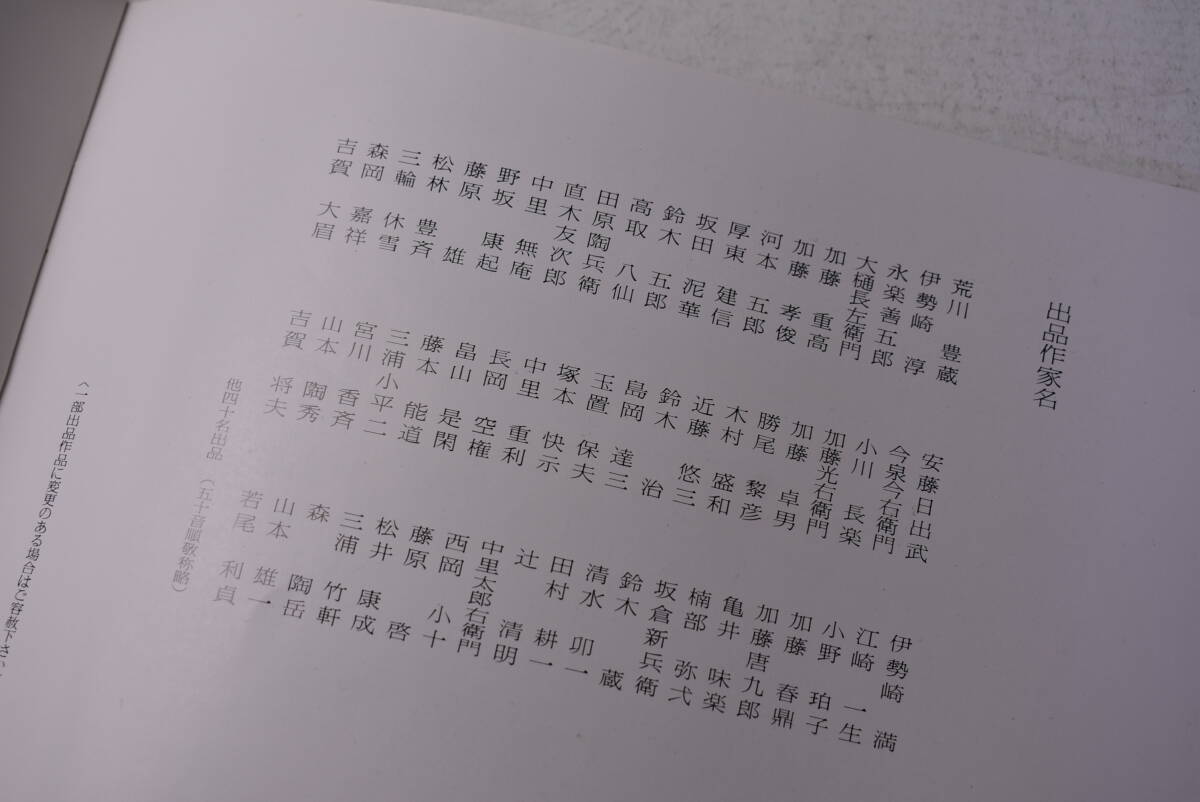 出品作家名
荒川 豊蔵 安藤日出武 伊勢崎 満
伊勢崎 淳 今泉今右衛門 江崎 一生
永楽善五郎 小川 長楽 小野 珀子
大樋長左衛門 加藤光右衛門 加藤 春鼎
加藤 重高 加藤 卓男 加藤唐九郎
加藤 孝俊 勝尾 黎彦 亀井 味楽
河本 五郎 木村 盛和 楠部 弥弌
厚東 建信 近藤 悠三 坂倉新兵衛
坂田 泥華 鈴木 治 鈴木 蔵
鈴木 五郎 島岡 達三 清水 卯一
高取 八仙 玉置 保夫 田村 耕一
田原陶兵衛 塚本 快示 辻 清明
直木友次郎 中里 重利 中里太郎右衛門
中里 無庵 長岡 空権 西岡 小十
野坂 康起 畠山 是閑 藤原 啓
藤原 雄 藤本 能道 松井 康成
松林 豊斉 三浦小平二 三浦 竹軒
三輪 休雪 宮川 香斉 森 陶岳
森岡 嘉祥 山本 陶秀 山本 雄一
吉賀 大眉 吉賀 将夫 若尾 利貞
他四十名出品（五十音順敬称略）
（一部出品作品に変更のある場合はご容赦下さい